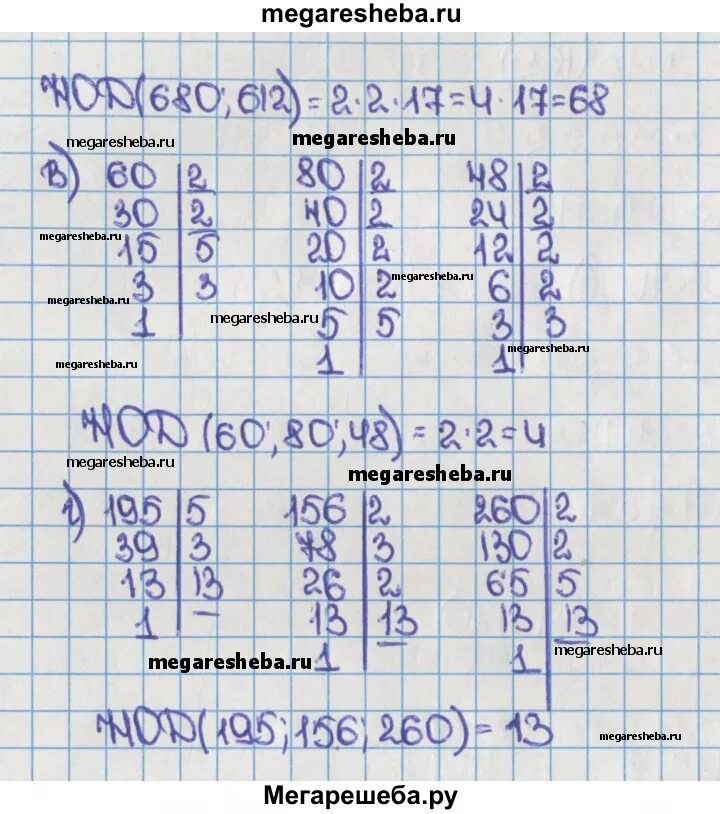 megaresheba.ru
НОД(680; 612) = 2·2·17=4·17=68
megaresheba.ru megaresheba.ru
в) 60 | 2 80 | 2 48 | 2
30 | 2 40 | 2 24 | 2
megaresheba.ru 15 | 5 20 | 2 12 | 2
megaresheba.ru 3 | 3 10 | 2 megaresheba.ru 6 | 2
1 megaresheba.ru 5 | 5 3 | 3
megaresheba.ru 1 1 megaresheba.ru
НОД (60; 80; 48) = 2·2=4
megaresheba.ru megaresheba.ru
г) 195 | 5 156 | 2 260 | 2
39 | 3 78 | 3 130 | 2
13 | 13 26 | 2 65 | 5
1 13 | 13 13 | 13
megaresheba.ru 1 1 megaresheba.ru
НОД(195; 156; 260) = 13 megaresheba.ru
Мегарешеба.ру